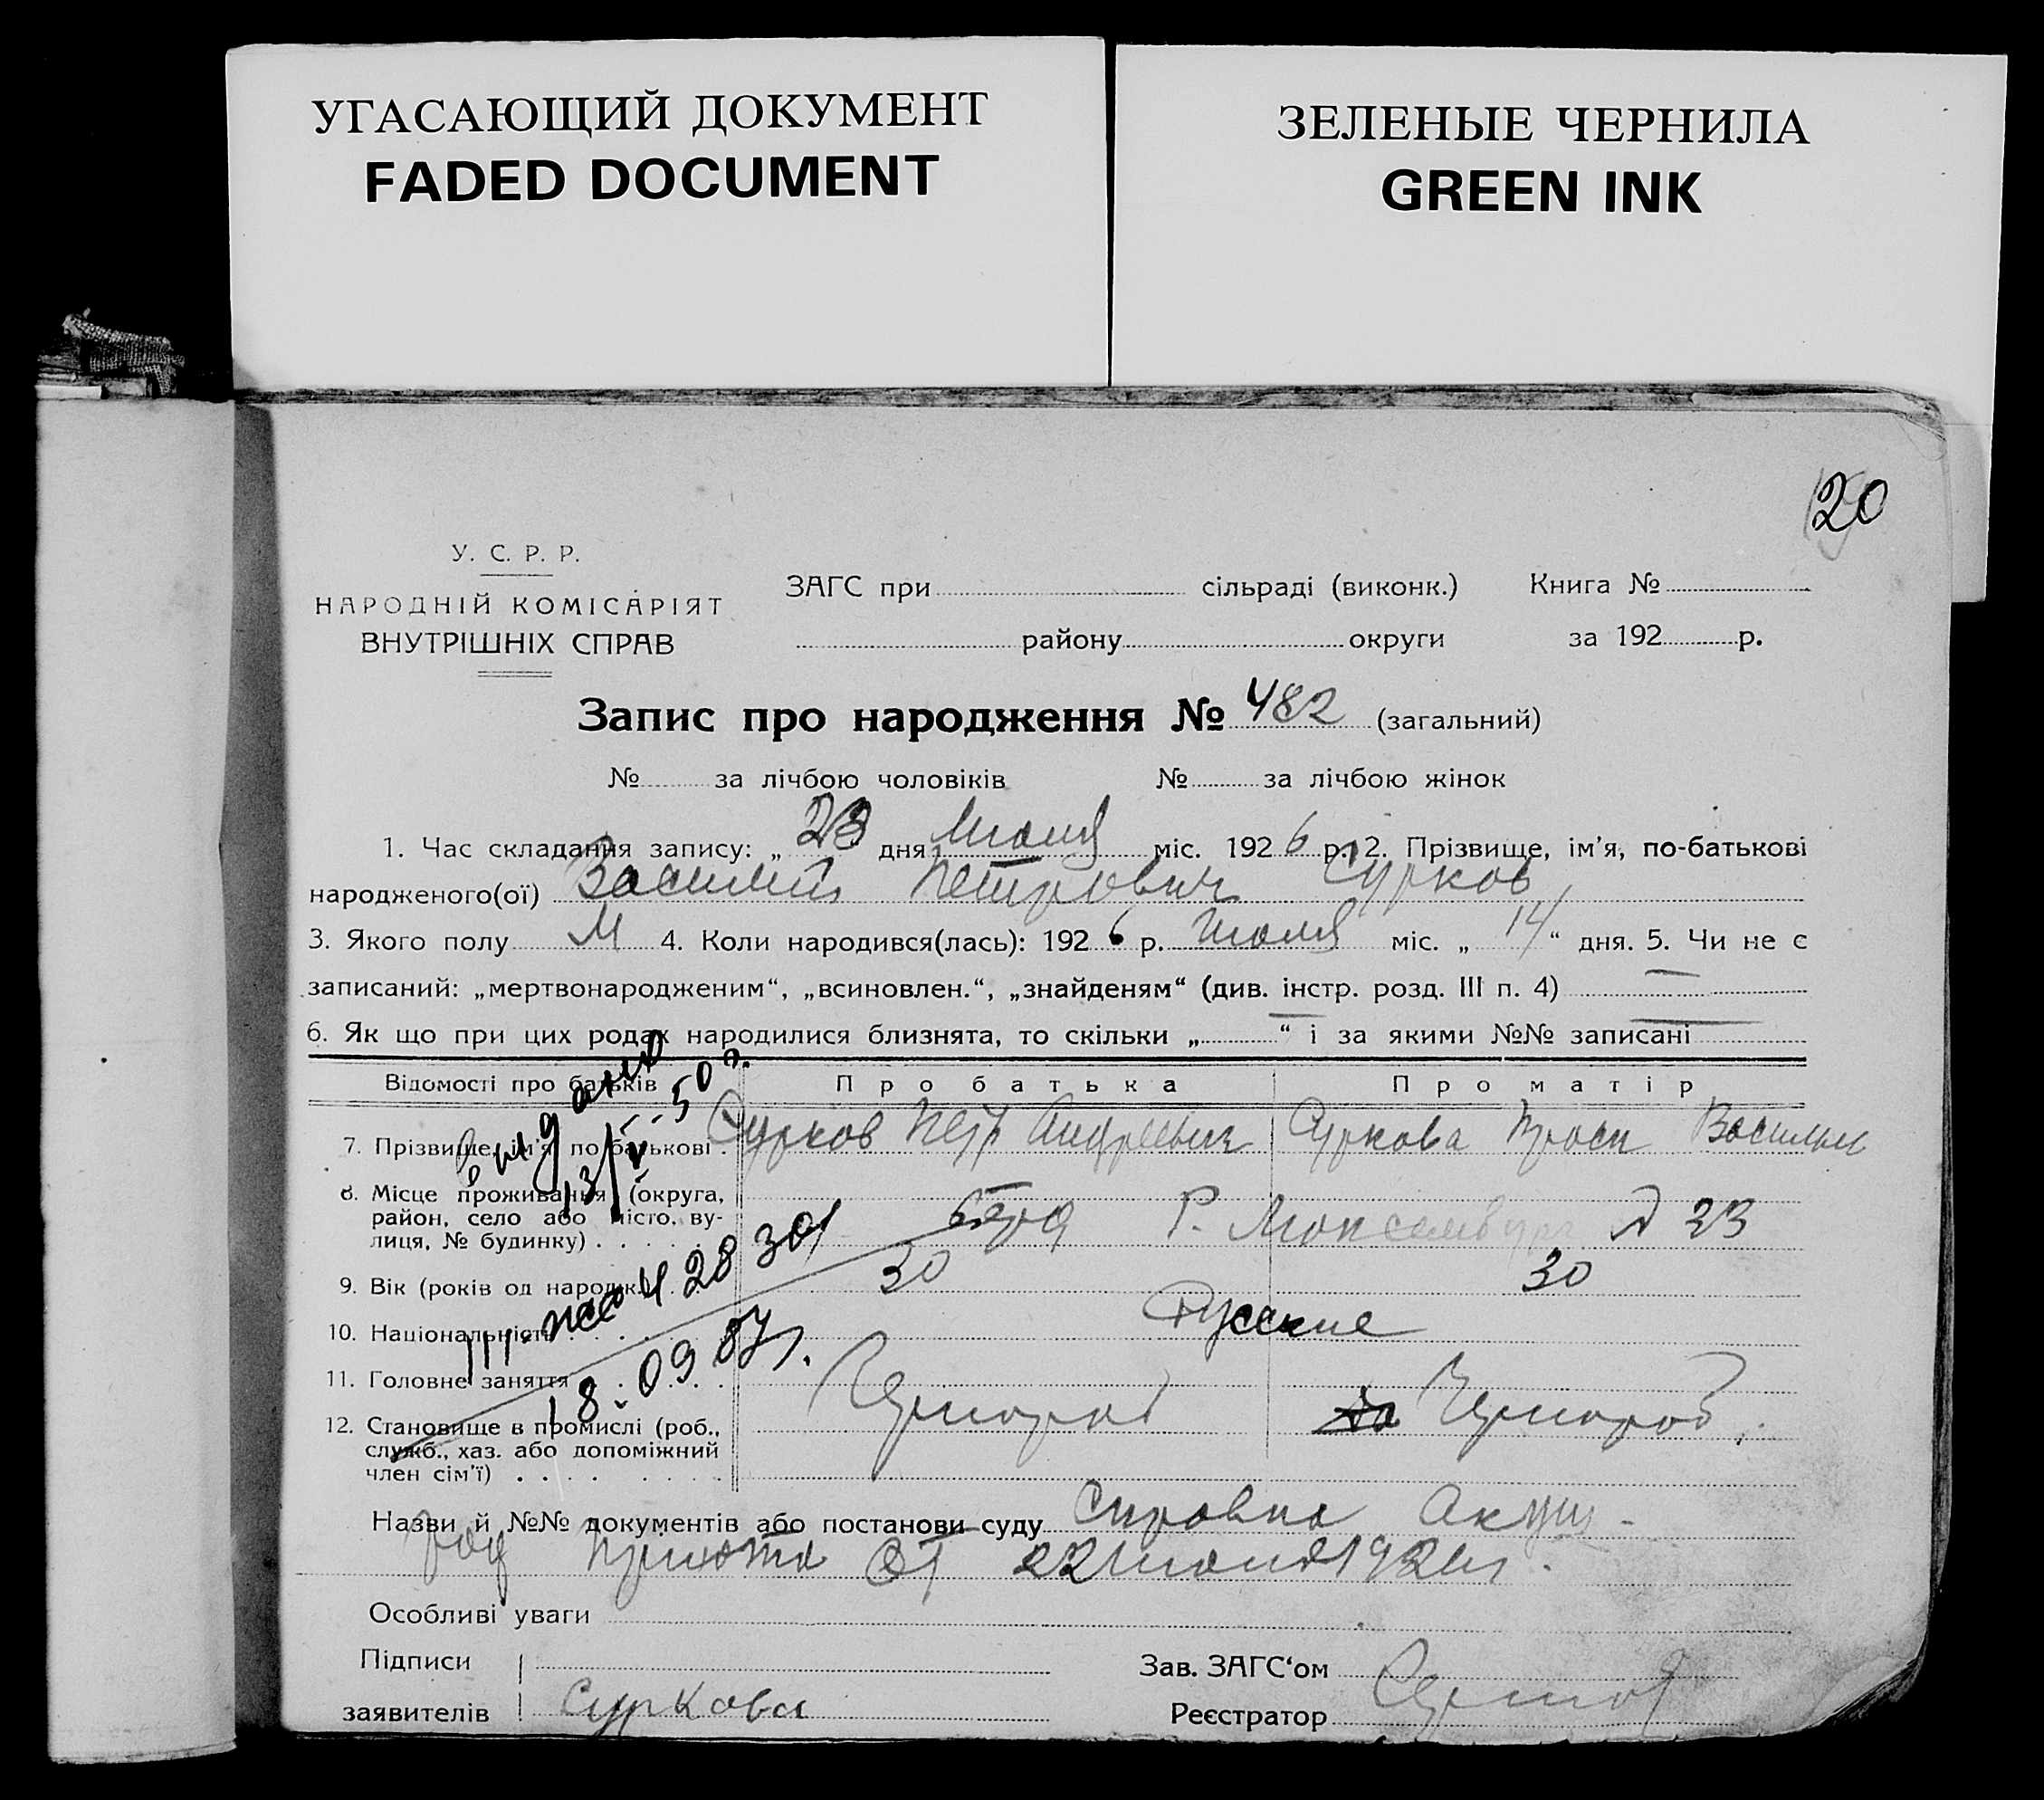 УГАСАЮЩИЙ ДОКУМЕНТ
FADED DOCUMENT
ЗЕЛЕНЫЕ ЧЕРНИЛА
GREEN INK
20
У. С. Р. Р.
НАРОДНІЙ КОМІСАРІЯТ
ВНУТРІШНІХ СПРАВ
ЗАГС при сільраді (виконк.) Книга №
району округи за 192 р.
Запис про народження № 482 (загальний)
№ за лічбою чоловіків № за лічбою жінок
1. Час складання запису: „ 23 дня Июля міс. 1926 р. 2. Прізвище, ім'я, по-батькові
народженого(ої) Василий Петрович Сурков
3. Якого полу М 4. Коли народився(лась): 1926 р. Июля міс. „ 14 “ дня. 5. Чи не є
записаний: „мертвонародженим“, „всиновлен.“, „знайденям“ (див. інстр. розд. III п. 4) —
6. Як що при цих родах народилися близнята, то скільки „ — “ і за якими №№ записані —
Відомості про батьків Про батька Про матір
7. Прізвище, ім'я, по батькові . Сурков Петр Андреевич Суркова Проск Васильев
8. Місце проживання (округа, район, село або місто, вулиця, № будинку) . . . Р. 23
9. Вік (років од народж.) 30 30
10. Національність . . Русские
11. Головне заняття . . .
12. Становище в промислі (роб., служб., хаз. або допоміжний член сім'ї) . . . Чернораб Чернораб.
выдано
13/V-50 г.
428301
18.09 87г.
Назви й №№ документів або постанови суду Справка Акуш-
род приюта от 22 июля 1926 г.
Особливі уваги
Підписи
заявителів Суркова
Зав. ЗАГС‘ом
Реєстратор